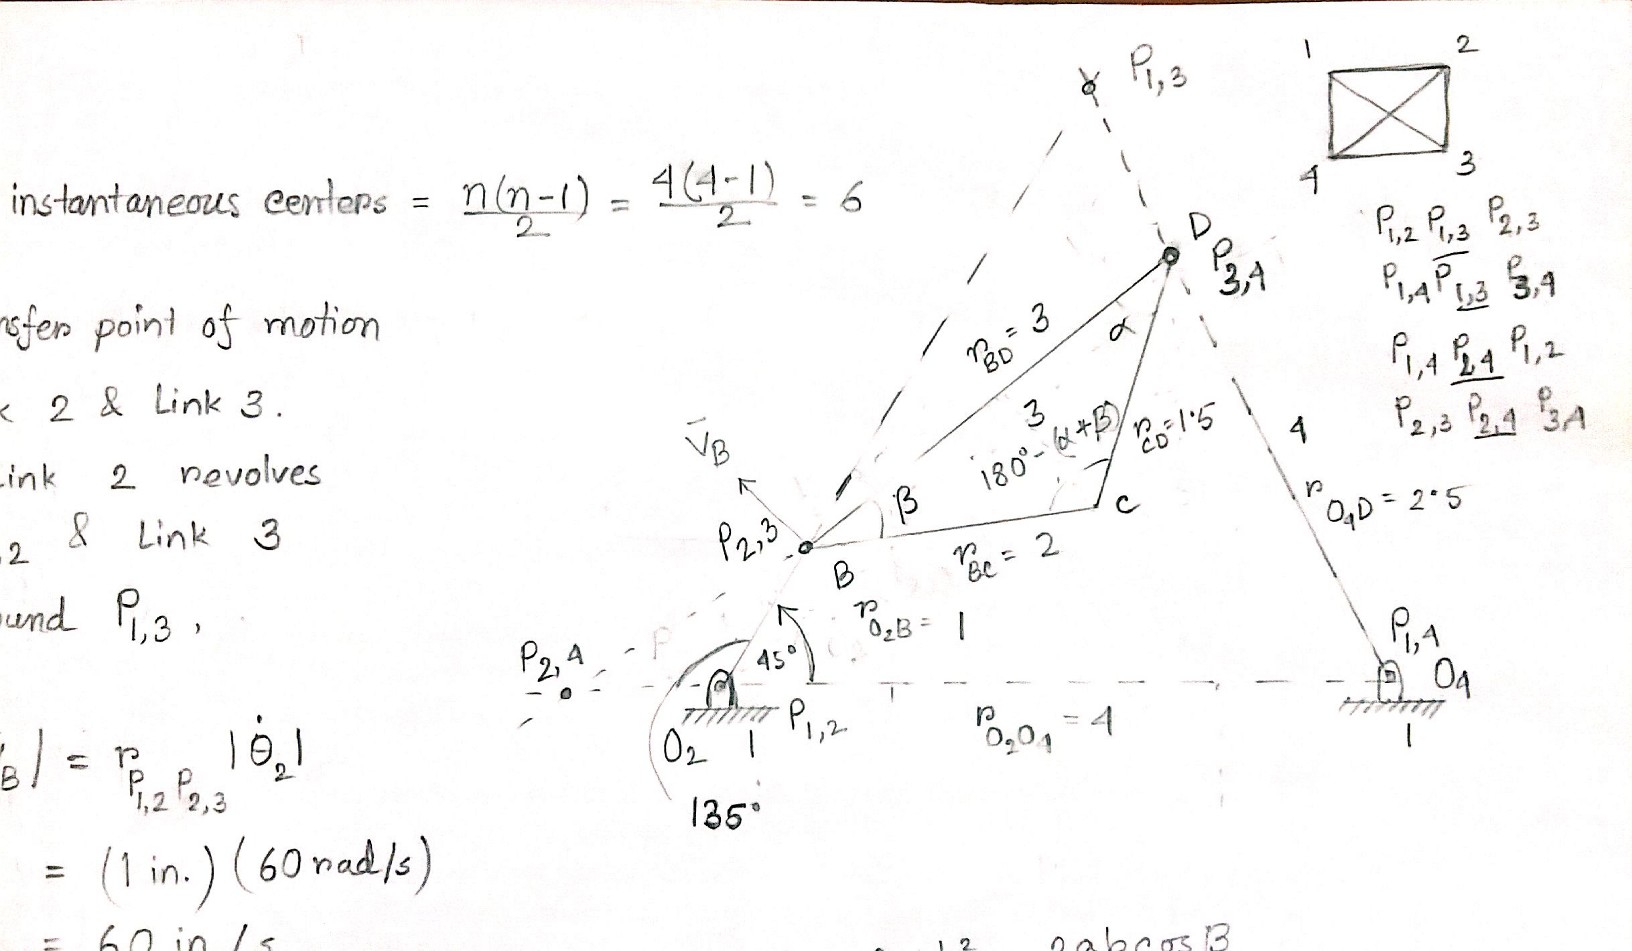 instantaneous centers = n(n-1)/2 = 4(4-1)/2 = 6
nsfer point of motion
k 2 & Link 3.
Link 2 revolves
,2 & Link 3
ound P1,3 ,
B| = r P1,2 P2,3 |θ̇2|
= (1 in.) (60 rad/s)
= 60 in/s
P1,3
D
P3,4
rBD = 3
α
3
180°-(α+β)
rCD=1.5
C
β
V̄B
P2,3
B
rBC = 2
rO2B = 1
45°
P2,4
P1,2
O2
1
135°
rO2O4 = 4
4
rO4D = 2.5
P1,4
O4
1
1 2
4 3
P1,2 P1,3 P2,3
P1,4 P1,3 P3,4
P1,4 P2,4 P1,2
P2,3 P2,4 P3,4
2abcosB